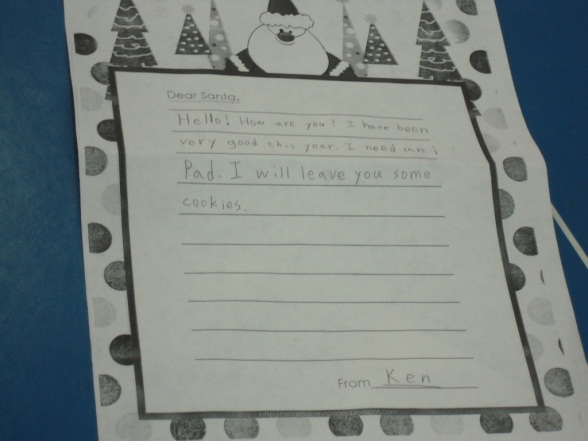 Dear Santa,
Hello! How are you? I have been
very good this year. I need an i
Pad. I will leave you some
cookies.
From Ken